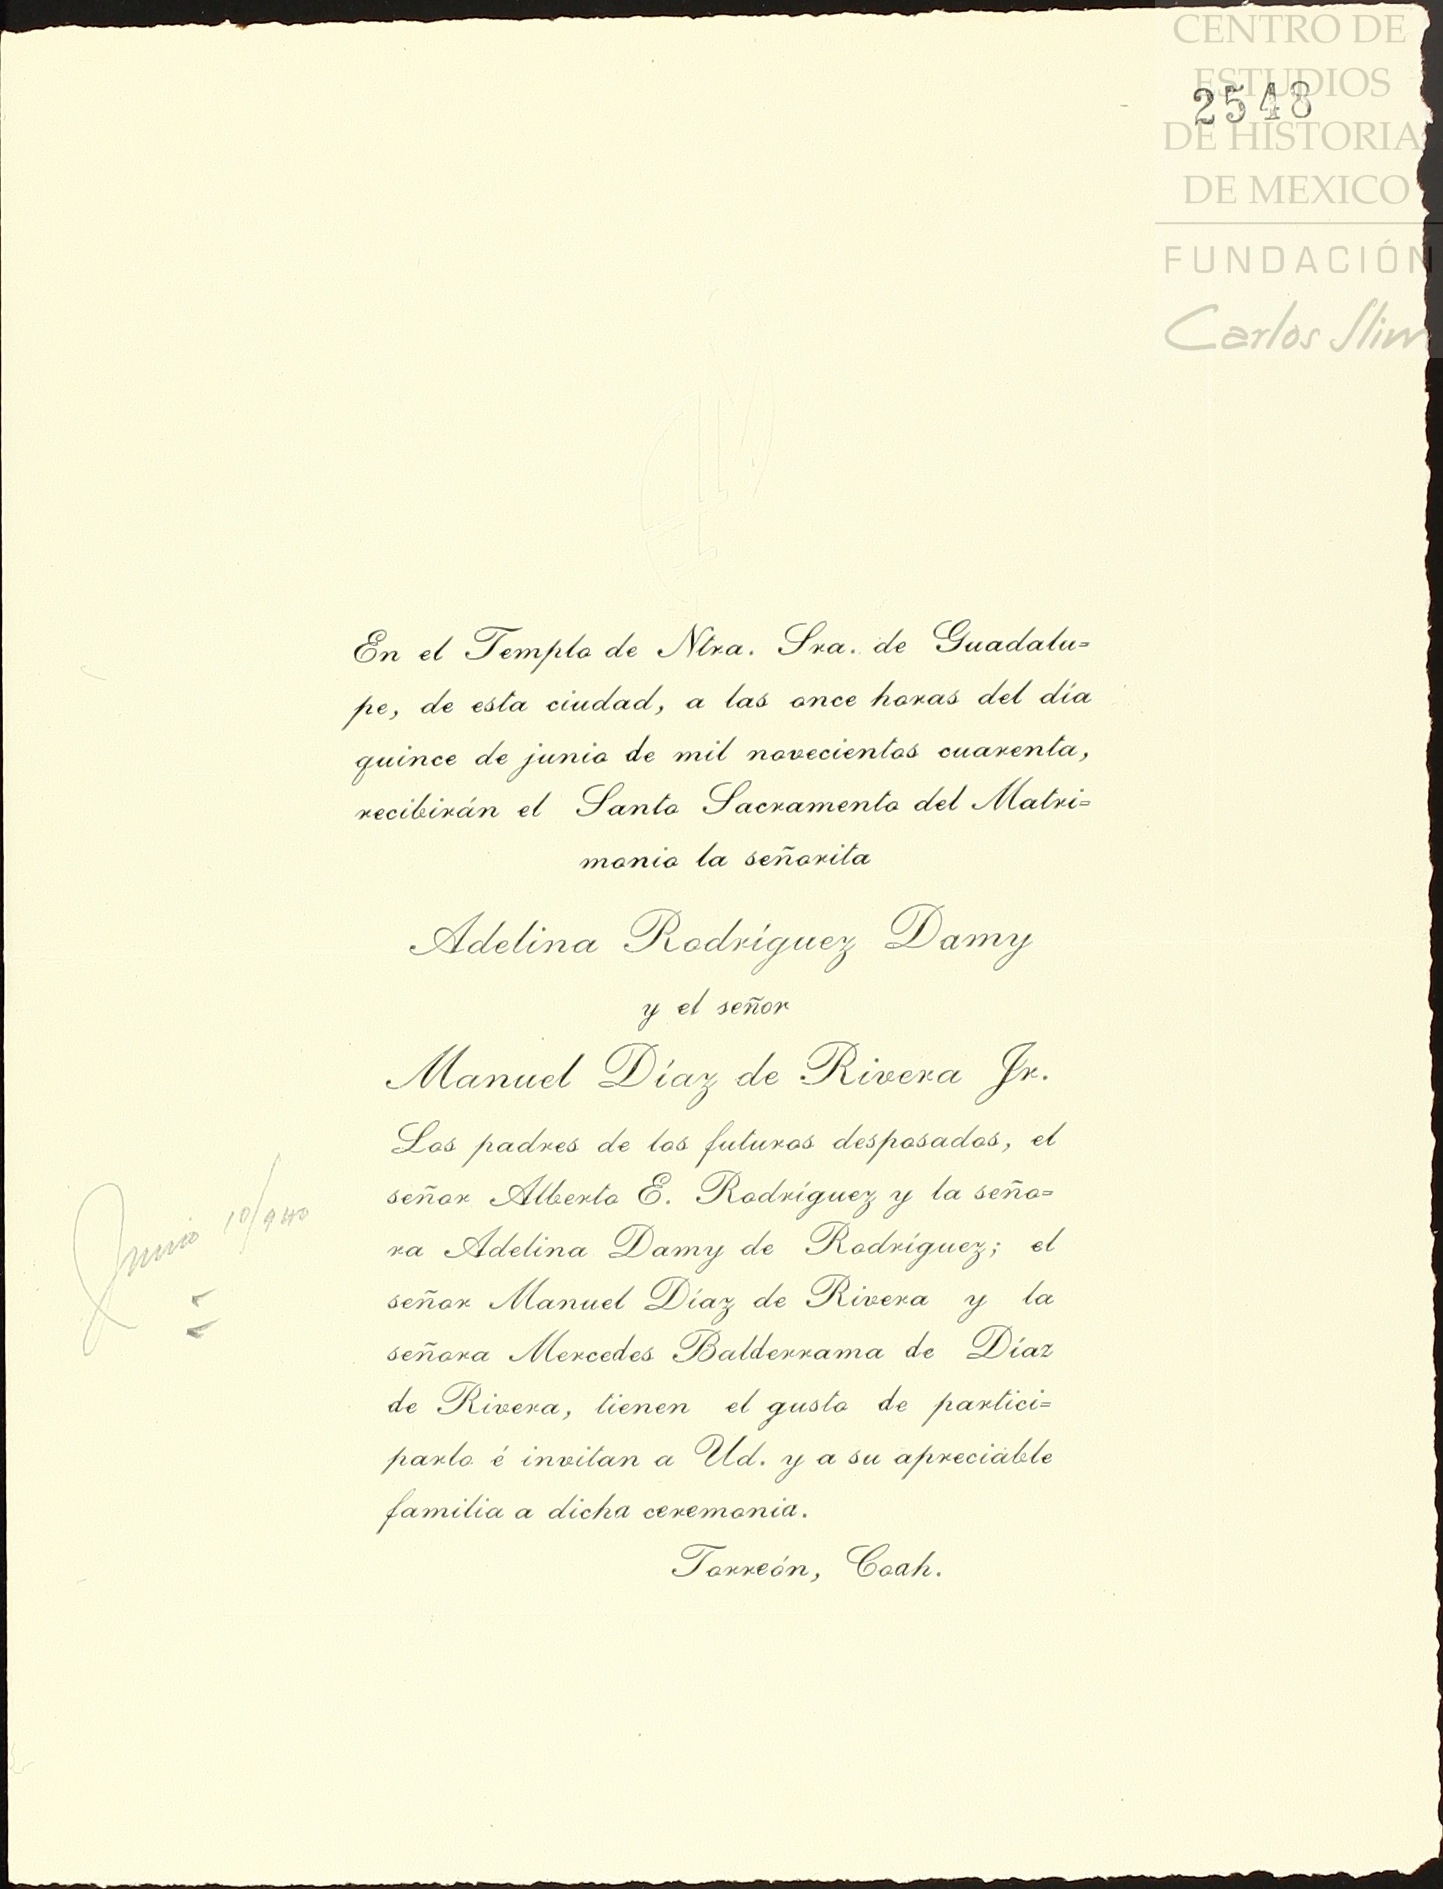 CENTRO DE
ESTUDIOS
DE HISTORIA
DE MEXICO
FUNDACIÓN
Carlos Slim
2548
En el Templo de Ntra. Sra. de Guadalu=
pe, de esta ciudad, a las once horas del día
quince de junio de mil novecientos cuarenta,
recibirán el Santo Sacramento del Matri=
monio la señorita
Adelina Rodríguez Damy
y el señor
Manuel Díaz de Rivera Jr.
Los padres de los futuros desposados, el
señor Alberto E. Rodríguez y la seño=
ra Adelina Damy de Rodríguez; el
señor Manuel Díaz de Rivera y la
señora Mercedes Balderrama de Díaz
de Rivera, tienen el gusto de partici=
parlo é invitan a Ud. y a su apreciable
familia a dicha ceremonia.
Torreón, Coah.
Junio 10/940